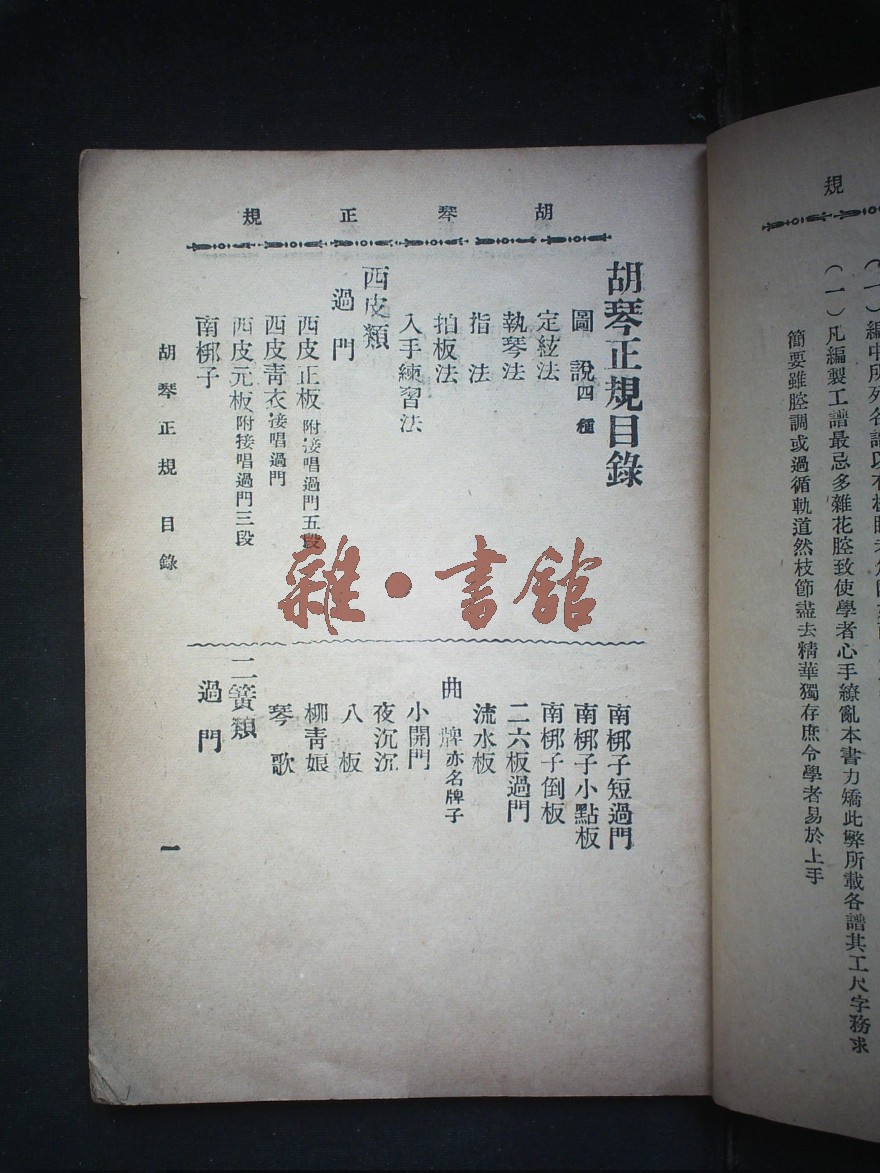 胡琴正規
胡琴正規目錄
圖說四種
定絃法
執琴法
指法
拍板法
入手練習法
西皮類
過門
西皮正板附接唱過門五段
西皮靑衣接唱過門
西皮元板附接唱過門三段
南梆子
胡琴正規 目錄
南梆子短過門
南梆子小點板
南梆子倒板
二六板過門
流水板
曲牌亦名牌子
小開門
夜沉沉
八板
柳靑娘
琴歌
二簧類
過門
一
雜·書館
規
(一)編中所列各譜以有板眼者爲
(一)凡編製工譜最忌多雜花腔致使學者心手繚亂本書力矯此弊所載各譜其工尺字務求
簡要雖腔調或過循軌道然枝節盡去精華獨存庶令學者易於上手